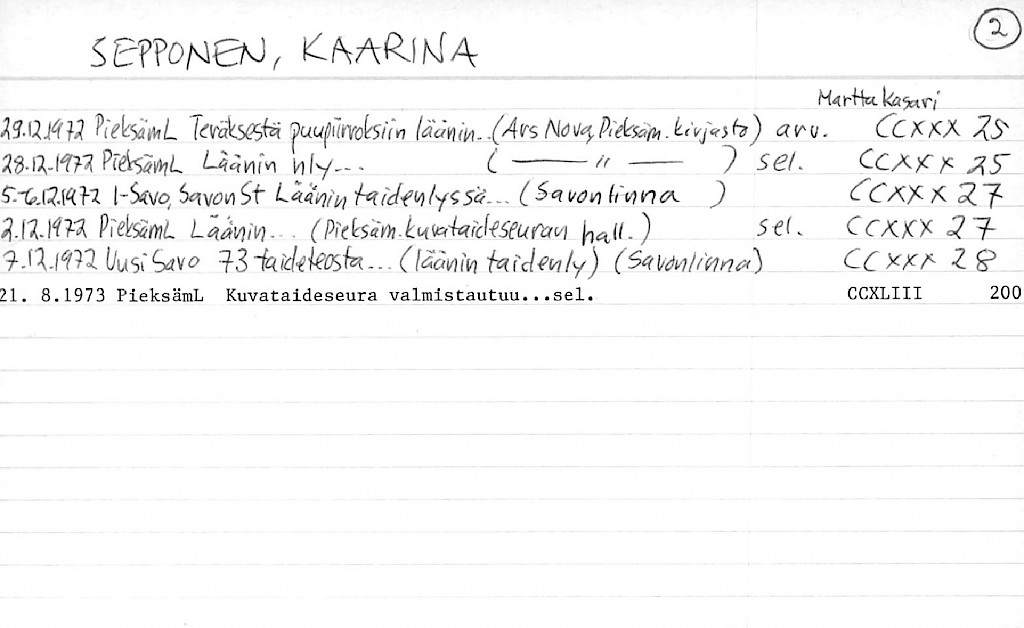 2
SEPPONEN, KAARINA
Martta Kasari
29.12.1972 PieksämL Teräksestä puupiirroksiin läänin... (Ars Nova, Pieksäm. kirjasto) arv. CCXXX 25
28.12.1972 PieksämL Läänin nly... ( — " — ) sel. CCXXX 25
5.-6.12.1972 I-Savo, SavonSt Läänin taidenlyssä... (Savonlinna ) CCXXX 27
2.12.1972 PieksämL Läänin... (Pieksäm. kuvataideseuran hall.) sel. CCXXX 27
7.12.1972 Uusi Savo 73 taideteosta... (läänin taidenly) (Savonlinna) CCXXX 28
21. 8.1973 PieksämL Kuvataideseura valmistautuu...sel. CCXLIII 200